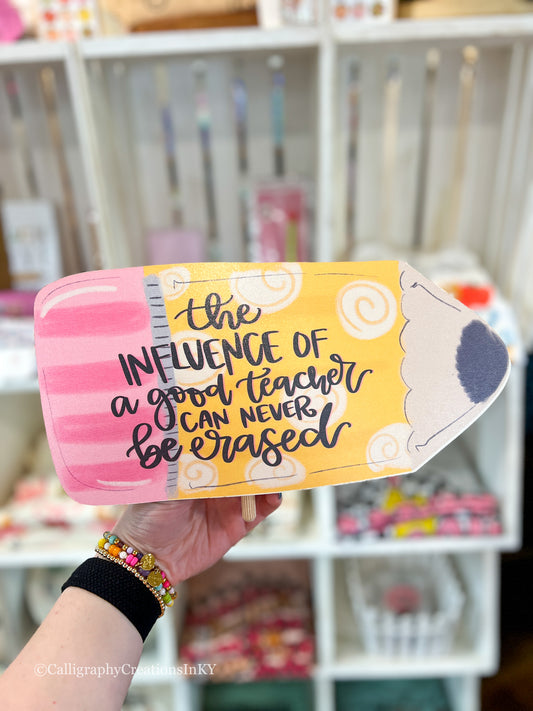 the
INFLUENCE OF
a good teacher
CAN NEVER
be erased
©CalligraphyCreationsInKY